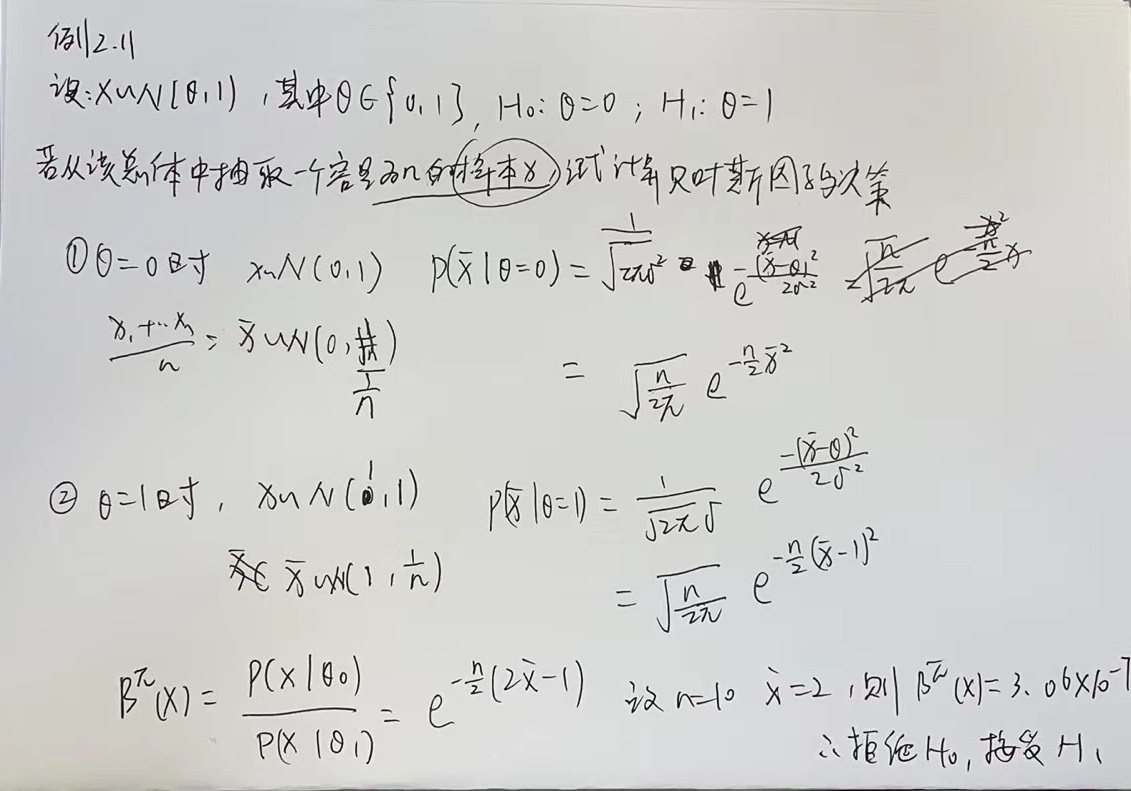 例2.11
设: X~N(θ,1), 其中θ∈{0,1}, H₀: θ=0; H₁: θ=1
若从该总体中抽取一个容量为n的样本x, 试计算贝叶斯因子与决策
① θ=0时 x~N(0,1) p(x̄|θ=0) = 1/√(2πσ²) e^(-(x̄-θ)²/2σ²)
(x₁+…xₙ)/n = x̄~N(0, 1/n) = √(n/2π) e^(-n/2 x̄²)
② θ=1时, x~N(1,1) p(x̄|θ=1) = 1/(√2π σ) e^(-(x̄-θ)²/2σ²)
x̄~N(1, 1/n) = √(n/2π) e^(-n/2 (x̄-1)²)
B^π(x) = P(x|θ₀)/P(x|θ₁) = e^(-n/2 (2x̄-1)) 设n=10 x̄=2, 则B^π(x)=3.06×10⁻⁷
∴拒绝H₀, 接受H₁